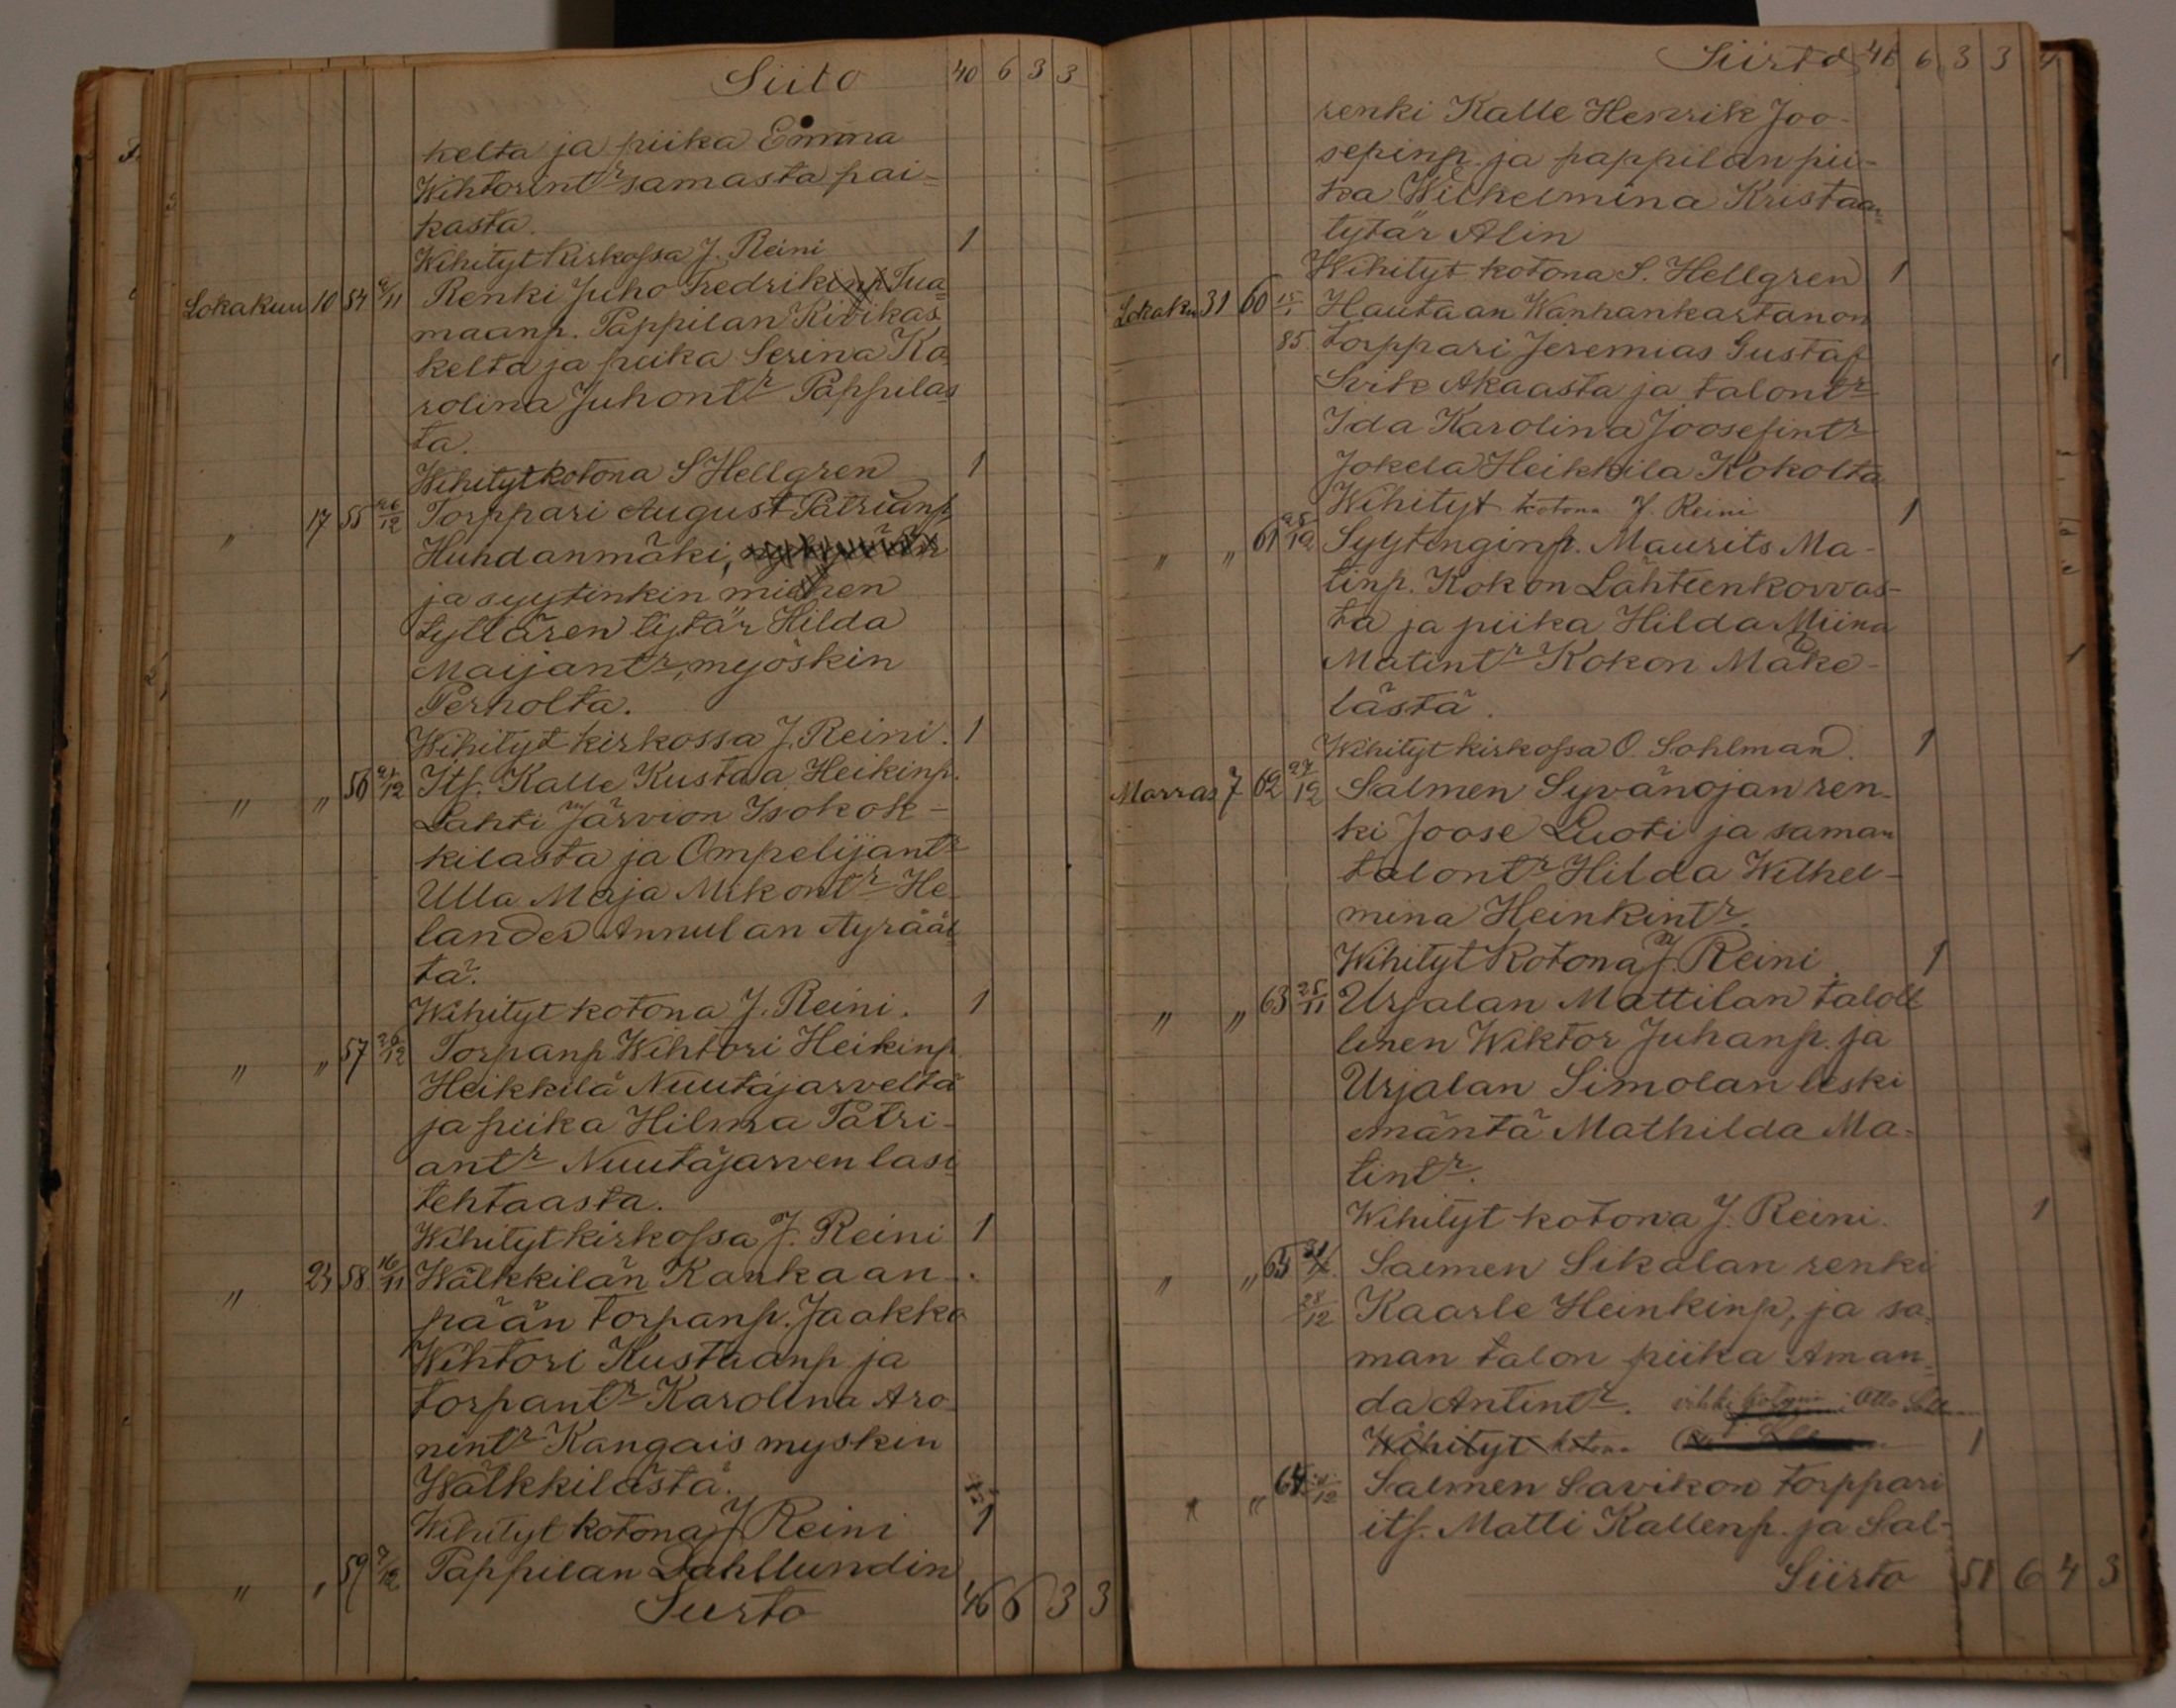 Siito 40 6 3 3
kelta ja piika Emma
Wihtorintr samasta pai-
kasta.
Wihityt kirkossa J. Reini 1
Lokakuu 10 54 /11 Renki Juho Fredrikinp Tua-
maanp. Pappilan Rivikas
kelta ja piika Serina Ka
rolina Juhontr Pappilas
ta.
Wihityt kotona S Hellgren 1
" 17 55 26/12 Torppari August Patrianp
Huhdanmäki,
ja syytinkin miehen
tyttären tytär Hilda
Maijantr, myöskin
Perholta.
Wihityt kirkossa J. Reini. 1
" " 56 /12 Its. Kalle Kustaa Heikinp.
Lahti Järvion Isokok-
kilasta ja Ompelijantr
Ulla Maja Mikontr He
lander Annulan Äyrääl
tä.
Wihityt kotona J. Reini. 1
" " 57 26/12 Torpanp Wihtori Heikinp
Heikkilä Nuutajarveltä
ja piika Hilma Patri-
antr Nuutajarven lasi
tehtaasta.
Wihityt kirkossa J. Reini 1
" 23 58 16/11 Wälkkilän Kankaan-
pään torpanp. Jaakko
Wihtori Kustaanp ja
torpantr Karolina Aro
nintr Kangais myskin
Wälkkilästä.
Wihityt kotona J Reini 1
" " 59 7/12 Pappilan Dahllundin
Siirto 46 6 3 3
Siirto 46 6 3 3 4
renki Kalle Henrik Joo-
sepinp. ja pappilan pii-
ka Wilhelmina Kristaan
tytär Alin
Wihityt kotona S. Hellgren 1
Lokaku 31 60 15/1 Hautaan Wanhankartanon
85 torppari Jeremias Gustaf
Akaasta ja talontr
Ida Karolina Joosefintr
Jokela Heikkila Kokolta
Wihityt kotona J. Reini 1
" " 61 25/12 Syytinginp. Maurits Ma-
tinp. Kokon Lähteenkorvas-
ta ja piika Hilda Miina
Matintr Kokon Mäke-
lästä.
Wihityt kirkossa O. Sohlman. 1
Marras 7 62 27/12 Salmen Syvänojan ren-
ki Joose Luoti ja saman
talontr Hilda Wilhel-
mina Heinkintr.
Wihityt Kotona J. Reini. 1
" " 63 25/11 Urjalan Mattilan taloll
linen Wiktor Juhanp. ja
Urjalan Simolan leski
emäntä Mathilda Ma-
tintr.
Wihityt kotona J. Reini. 1
" " 65 Salmen Sikalan renki
28/12 Kaarle Heinkinp, ja sa-
man talon piika Aman-
da Antintr. Otto
Wihityt kotona 1
" " 64 /12 Salmen Savikon torppari
its. Matti Kallenp. ja Sal-
Siirto 51 6 4 3